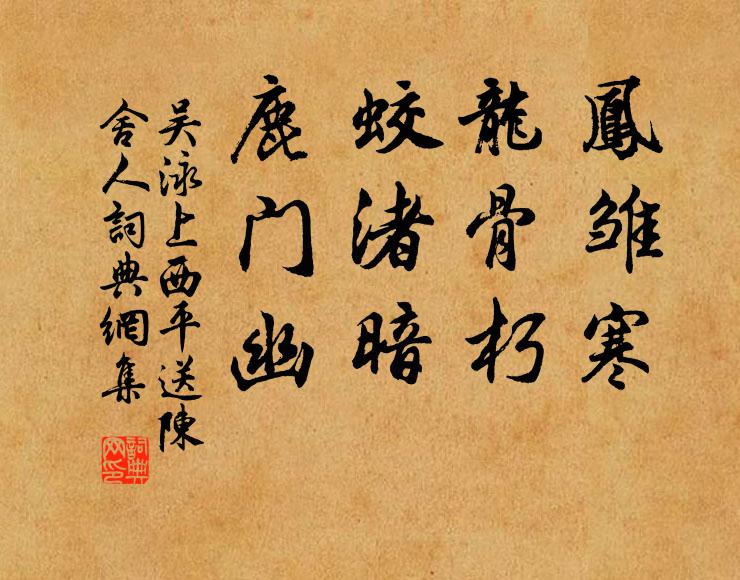 鳳雏寒
龍骨朽
蛟渚暗
鹿门幽
吴泳上西平送陳
舍人詞典網集
詞典网印